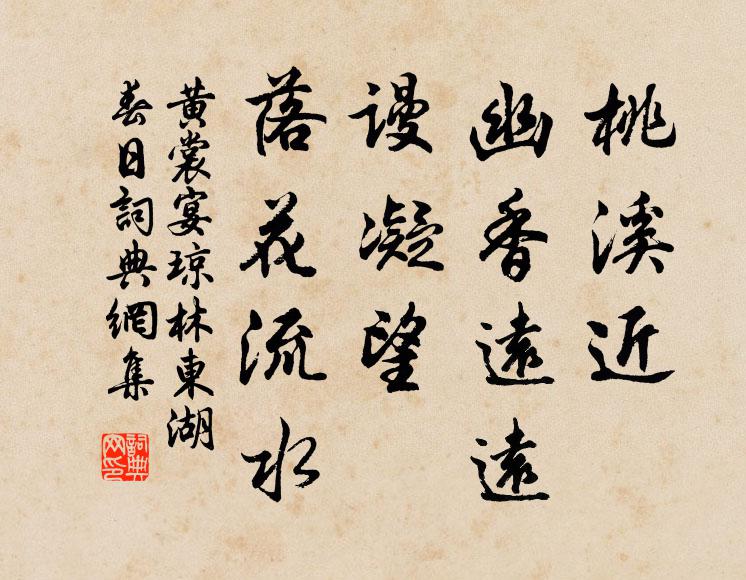 桃溪近
幽香遠遠
謾凝望
落花流水
黃裳宴琼林東湖
春日詞典網集
詞典
网印